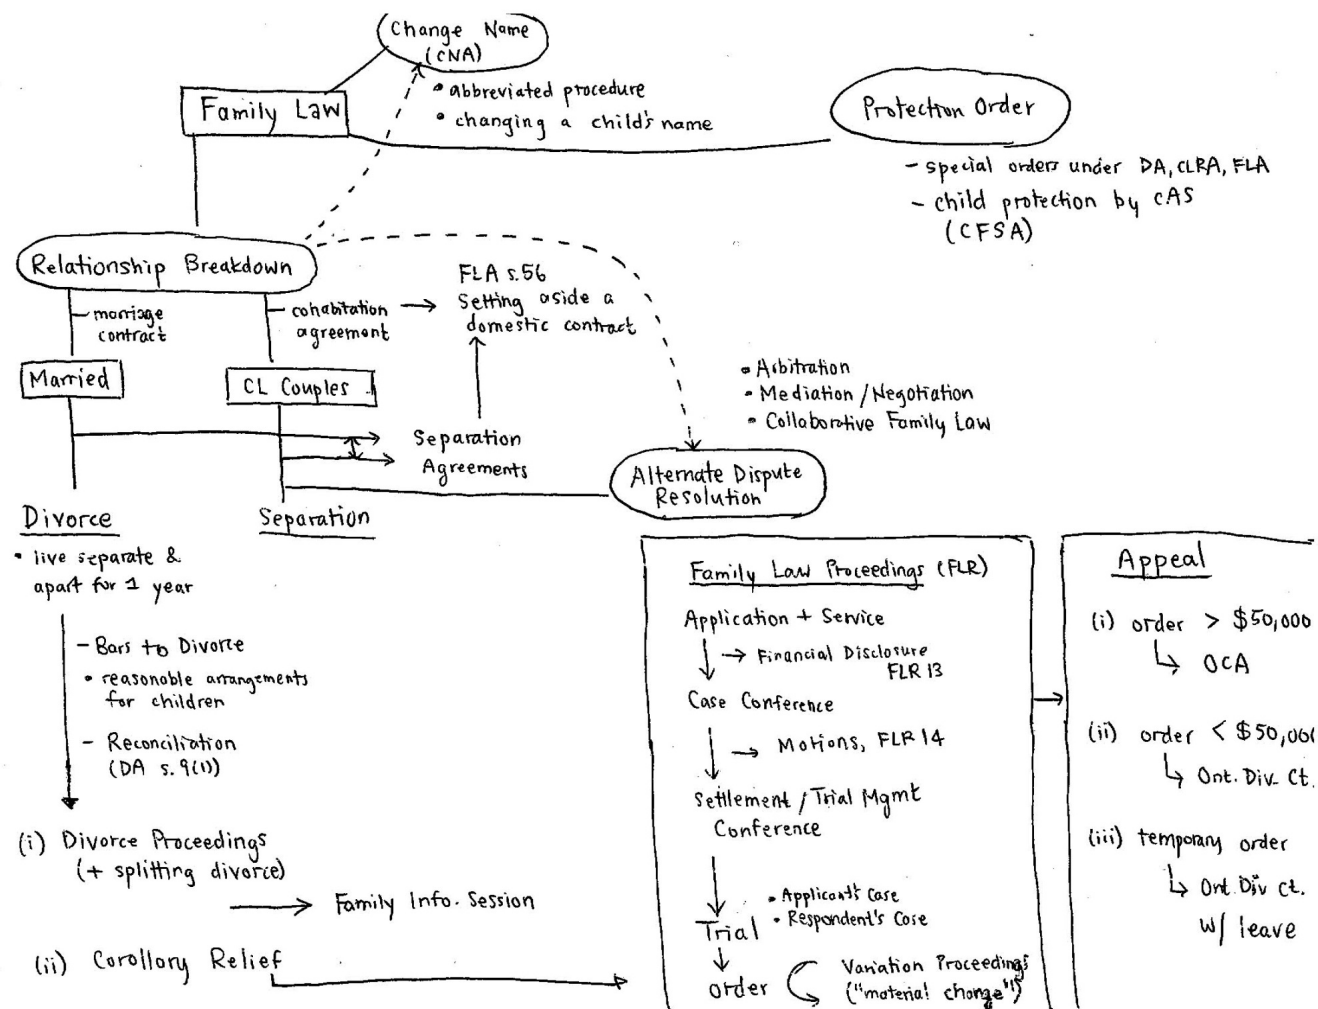 Change Name
(CNA)
• abbreviated procedure
• changing a child's name
Family Law
Protection Order
- special orders under DA, CLRA, FLA
- child protection by CAS
(CFSA)
Relationship Breakdown
- marriage
contract
- cohabitation
agreement
FLA s.56
Setting aside a
domestic contract
Married
CL Couples
Separation
Agreements
• Arbitration
• Mediation / Negotiation
• Collaborative Family Law
Alternate Dispute
Resolution
Divorce
• live separate &
apart for 1 year
Separation
- Bars to Divorce
• reasonable arrangements
for children
- Reconciliation
(DA s. 9(1))
(i) Divorce Proceedings
(+ splitting divorce)
Family Info. Session
(ii) Corollory Relief
Family Law Proceedings (FLR)
Application + Service
Financial Disclosure
FLR 13
Case Conference
Motions, FLR 14
Settlement / Trial Mgmt
Conference
• Applicant's Case
• Respondent's Case
Trial
order
Variation Proceedings
("material change")
Appeal
(i) order > $50,000
OCA
(ii) order < $50,000
Ont. Div. Ct.
(iii) temporary order
Ont. Div Ct.
w/ leave